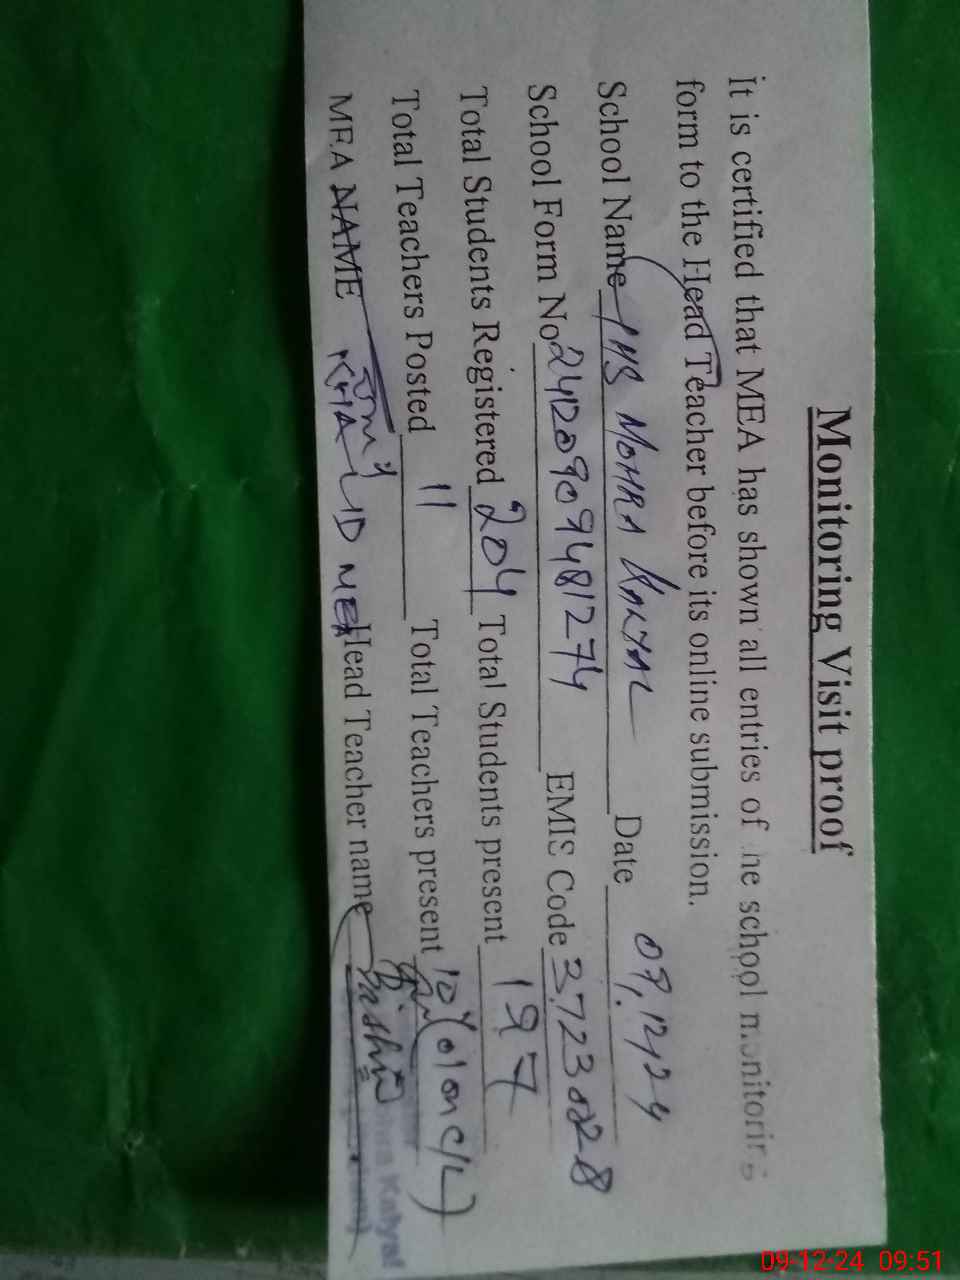 Monitoring Visit proof
It is certified that MEA has shown all entries of the school monitoring
form to the Head Teacher before its online submission.
School Name HS MOHRA KALYAL Date 09.12.24
School Form No 24120909481274 EMIS Code 37230228
Total Students Registered 204 Total Students present 197
Total Teachers Posted 11 Total Teachers present 10 (01 on C/L)
MEA NAME KHALID MEA Head Teacher name
Kalyal
09-12-24 09:51